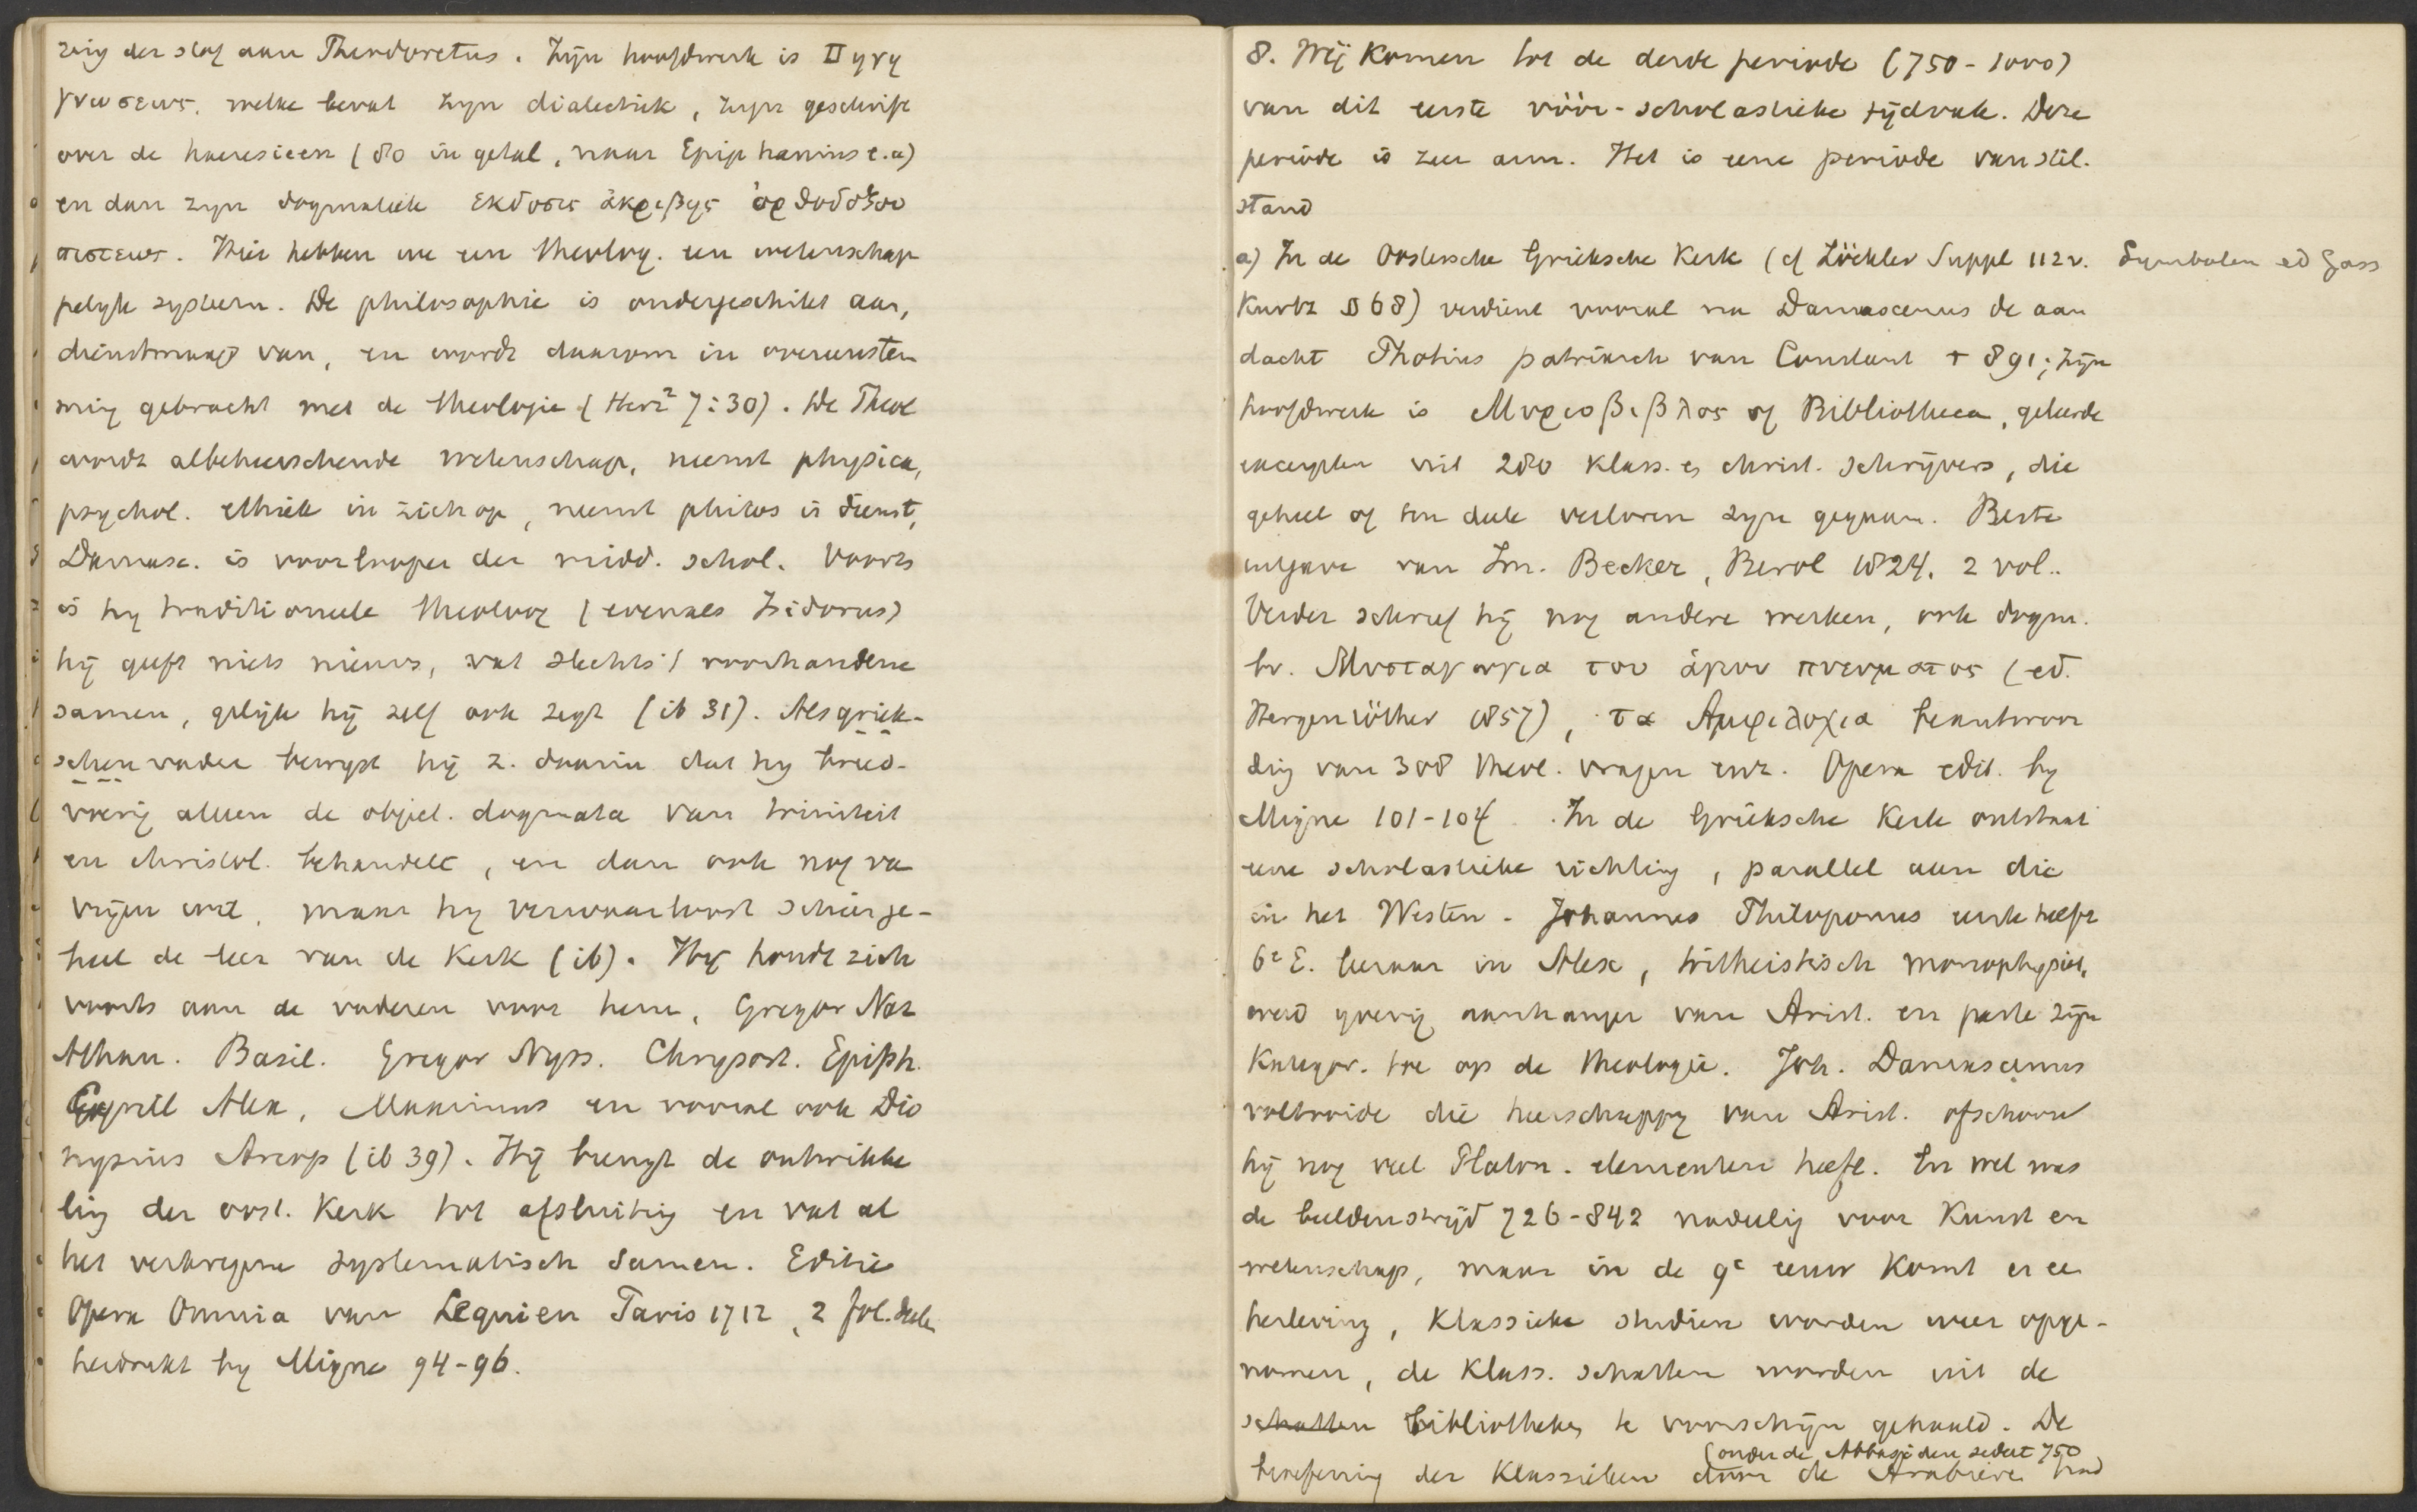 zing der slaf aan Theodoretus. Zijn hoofdwerk is Πηγη
γνωσεως, welke bevat zijn dialectiek, zijn geschrift
over de haeresieen (80 in getal, naar Epiphanius e.a)
en dan zijn dogmatiek εκδοσις ἀκριβης ὀρθοδοξου
πιστεως. Hier hebben we een theolog. een wetenschap
pelijk systeem. De philosophie is ondergeschikt aan,
dienstmaagd van, en wordt daarom in overeenstem
ming gebracht met de theologie (Herz² 7:30). De Theol
wordt albeheerschende wetenschap, neemt physica,
psychol. ethiek in zich op, neemt philos in dienst,
Damasc. is voorlooper der midd. schol. Voorts
is hy traditioneele theoloog (evenals Isidorus)
hij geeft niets nieuws, vat slechts 't voorhandene
samen, gelijk hij zelf ook zegt (ib 31). Als griek-
schen vader bewijst hij z. daarin dat hy breed-
voerig alleen de object. dogmata van triniteit
en christol. behandelt, en dan ook nog va
vrijen wil, maar hy verwaarloost schier ge-
heel de leer van de Kerk (ib). Hij houdt zich
voorts aan de vaderen voor hem, Gregor Naz
Athan. Basil. Gregor Nyss. Chrysost. Epiph.
Cyrill Alex, Maximus en vooral ook Dio
nysius Areop (ib 39). Hij brengt de ontwikke
ling der oost. Kerk tot afsluiting en vat al
het verkregene systematisch samen. Editie
Opera Omnia van Lequien Paris 1712, 2 fol. deelen
herdrukt by Migne 94-96.
8. Wij komen tot de derde periode (750-1000)
van dit eerste vóór-scholastieke tijdvak. Deze
periode is zeer arm. Het is eene periode van stil.
stand
a) In de Oostersche Grieksche Kerk (cf Zöckler Suppl 112v. Symbolen ed Gass
Kurtz § 68) verdient vooral na Damascenus de aan
dacht Photius patriarch van Constant † 891; zijn
hoofdwerk is Μυριοβιβλος of Bibliotheca, geleerde
excerpten uit 280 klass. en christ. schrijvers, die
geheel of ten deele verloren zijn gegaan. Beste
uitgave van Im. Becker, Berol 1824. 2 vol..
Verder schreef hij nog andere werken, ook dogm.
bv. Μυσταγωγια του ἁγιου πνευματος (ed.
Hergenröther 1857), τα Αμφιλοχια beantwoor
ding van 308 theol. vragen enz. Opera edit. by
Migne 101-104. In de Grieksche Kerk ontstaat
eene scholastieke richting, parallel aan die
in het Westen - Johannes Philoponus eerste helft
6e E. leeraar in Alex, tritheistisch monophysiet,
werd yverig aanhanger van Arist. en paste zijn
Kategor. toe op de theologie. Joh. Damascenus
voltooide die heerschappy van Arist. ofschoon
hij nog veel Platon. elementen heeft. En wel was
de beeldenstrijd 726-842 nadeelig voor Kunst en
wetenschap, maar in de 9e eeuw komt er ee
herleving, Klassieke studien worden weer opge-
nomen, de Klass. schatten worden uit de
schatten bibliotheken te voorschijn gehaald. De
(onder de Abbasiden sedert 750
beoefening der Klassieken door de Arabieren had